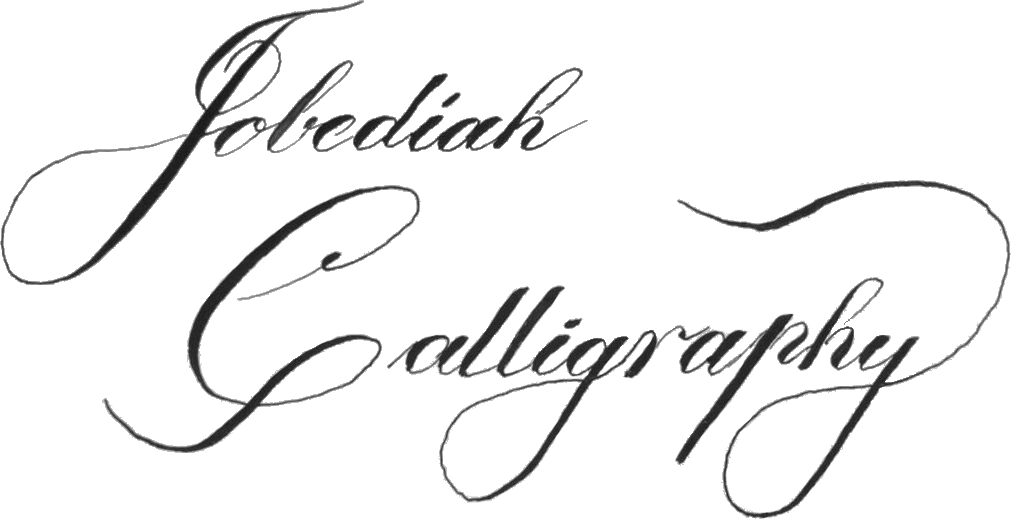 Jobediah
Calligraphy